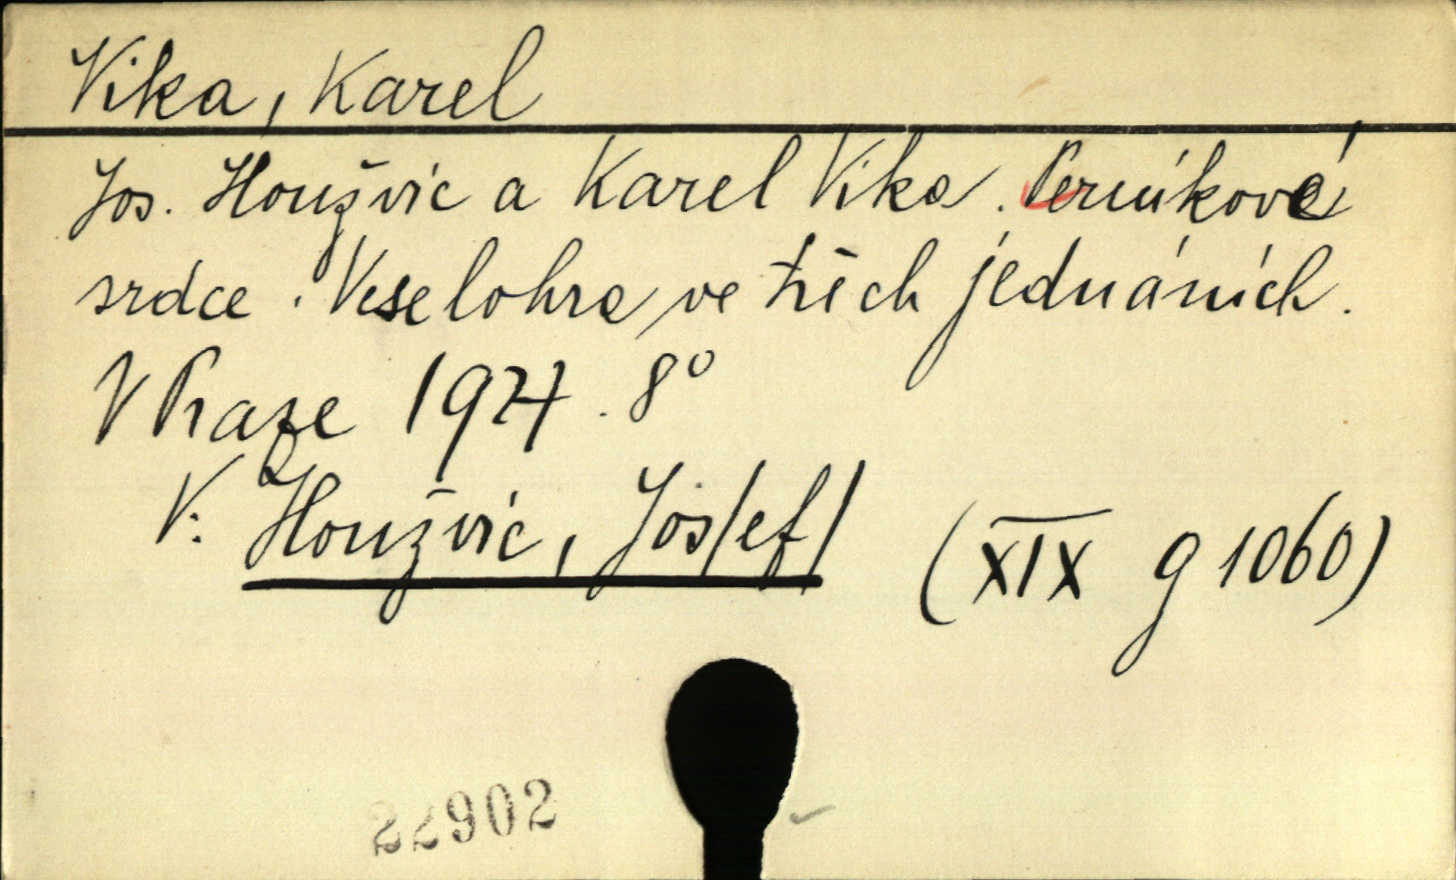 Vika, Karel
Jos. Houžvic a Karel Vika. Perníkové
srdce. Veselohra ve třech jednáních.
V Praze 1927. 8°
V: Houžvic, Jos/ef/
(XIX g 1060)
22902